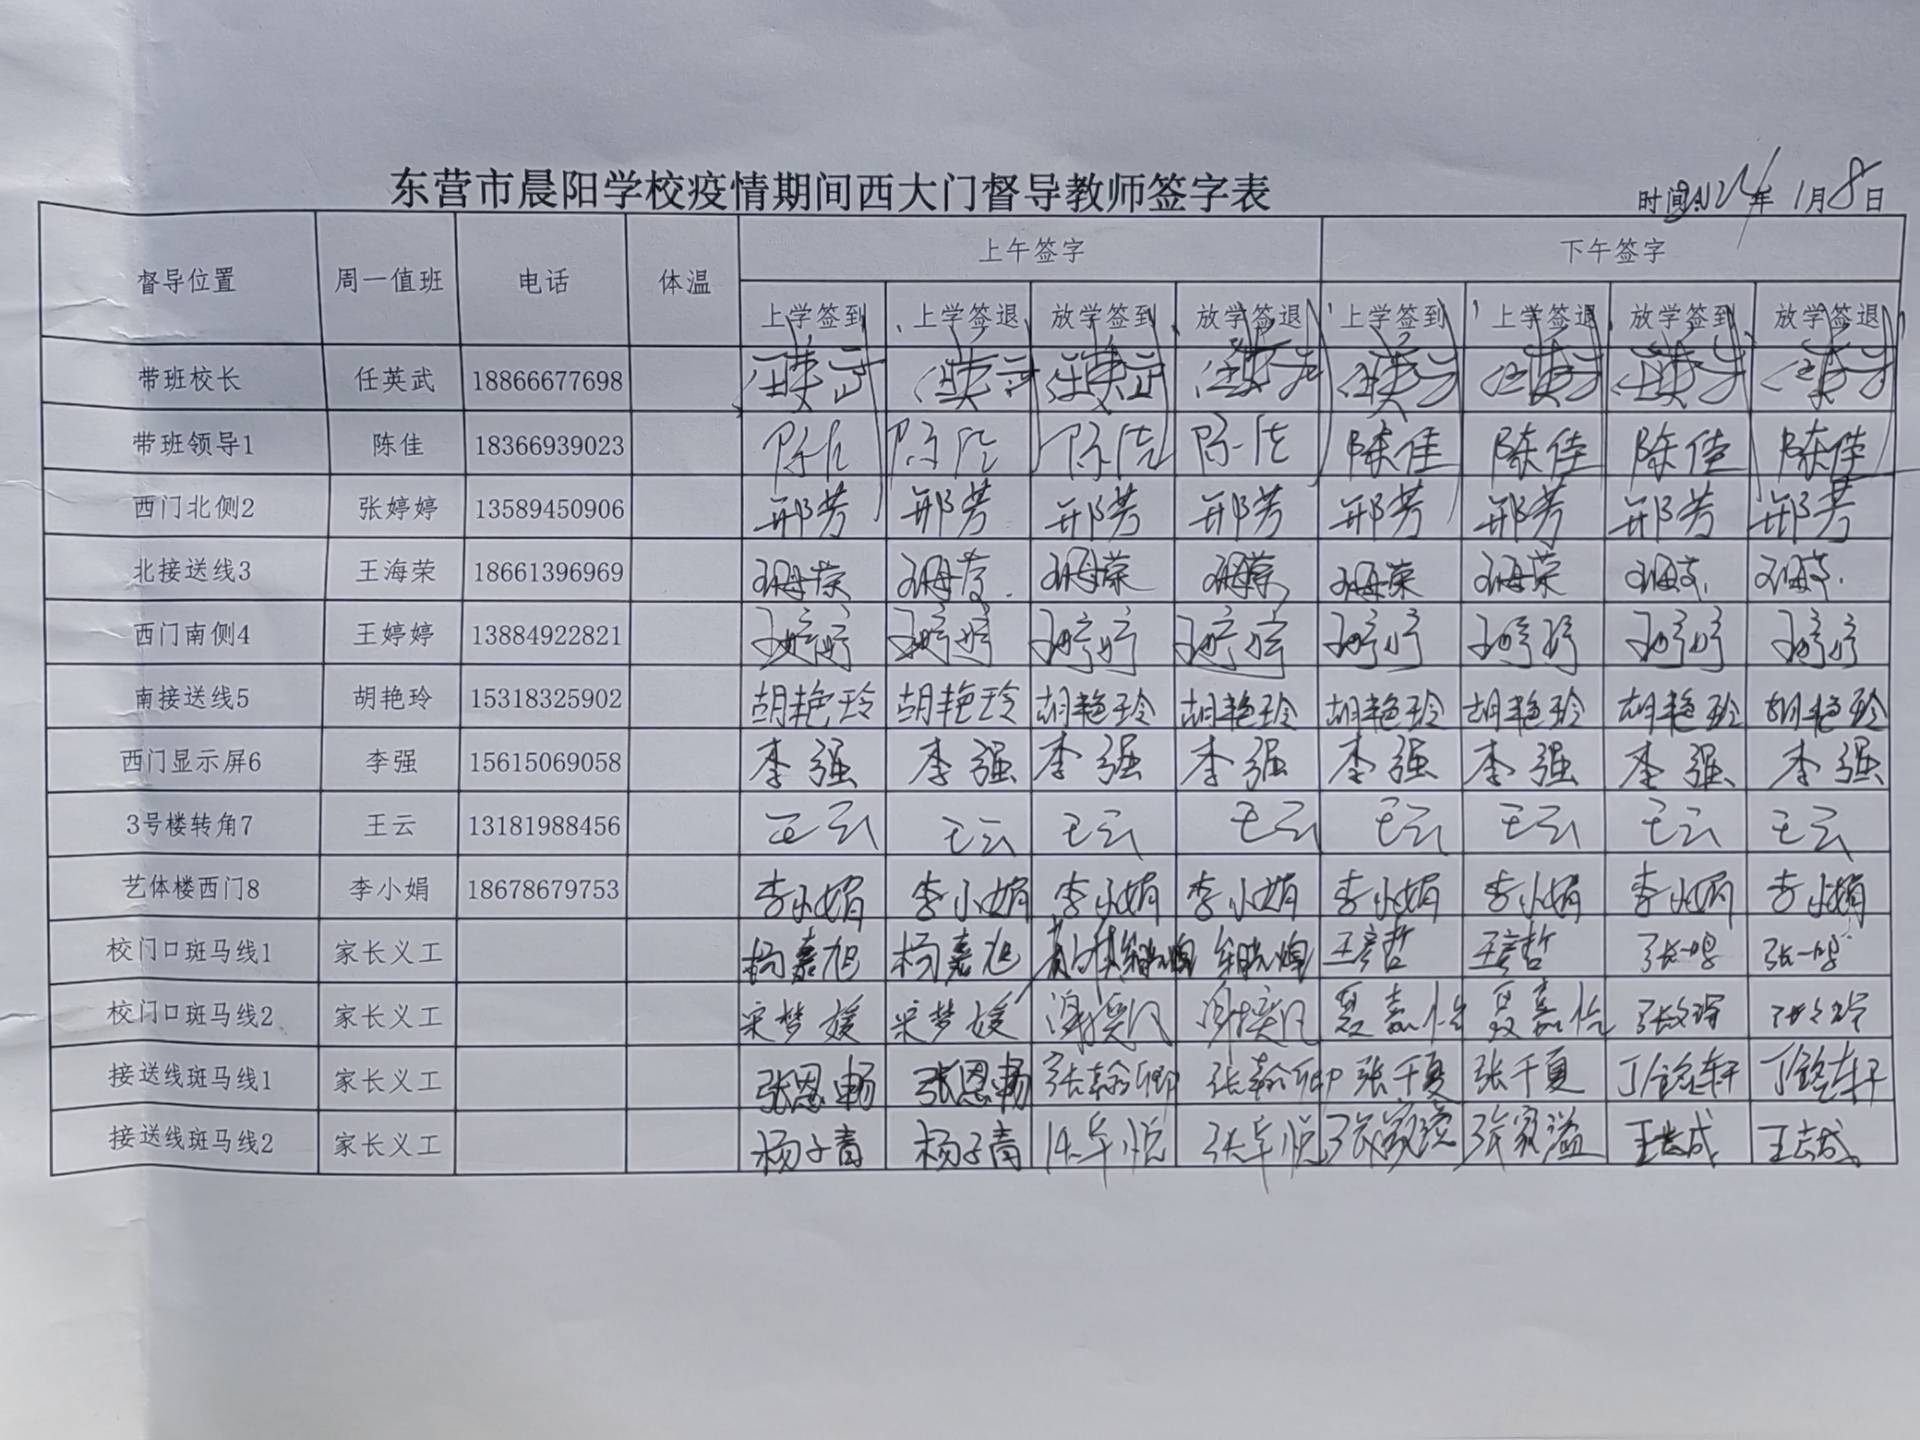 东营市晨阳学校疫情期间西大门督导教师签字表
时间: 2024年 1月8日
督导位置 周一值班 电话 体温 上午签字 下午签字
上学签到 上学签退 放学签到 放学签退 上学签到 上学签退 放学签到 放学签退
带班校长 任英武 18866677698 任英武 任英武 任英武 任英武 任英武 任英武 任英武 任英武
带班领导1 陈佳 18366939023 陈佳 陈佳 陈佳 陈佳 陈佳 陈佳 陈佳 陈佳
西门北侧2 张婷婷 13589450906 邢芳 邢芳 邢芳 邢芳 邢芳 邢芳 邢芳 邢芳
北接送线3 王海荣 18661396969 王海荣 王海荣 王海荣 王海荣 王海荣 王海荣 王海荣 王海荣
西门南侧4 王婷婷 13884922821 王婷婷 王婷婷 王婷婷 王婷婷 王婷婷 王婷婷 王婷婷 王婷婷
南接送线5 胡艳玲 15318325902 胡艳玲 胡艳玲 胡艳玲 胡艳玲 胡艳玲 胡艳玲 胡艳玲 胡艳玲
西门显示屏6 李强 15615069058 李强 李强 李强 李强 李强 李强 李强 李强
3号楼转角7 王云 13181988456 王云 王云 王云 王云 王云 王云 王云 王云
艺体楼西门8 李小娟 18678679753 李小娟 李小娟 李小娟 李小娟 李小娟 李小娟 李小娟 李小娟
校门口斑马线1 家长义工 杨嘉旭 杨嘉旭 王彦哲 王彦哲 张一鸣 张一鸣
校门口斑马线2 家长义工 宋梦媛 宋梦媛 夏嘉怡 夏嘉怡
接送线斑马线1 家长义工 张恩畅 张恩畅 张翰卿 张翰卿 张千夏 张千夏 丁铭轩 丁铭轩
接送线斑马线2 家长义工 杨子青 杨子青 张家溢 张家溢 王志成 王志成